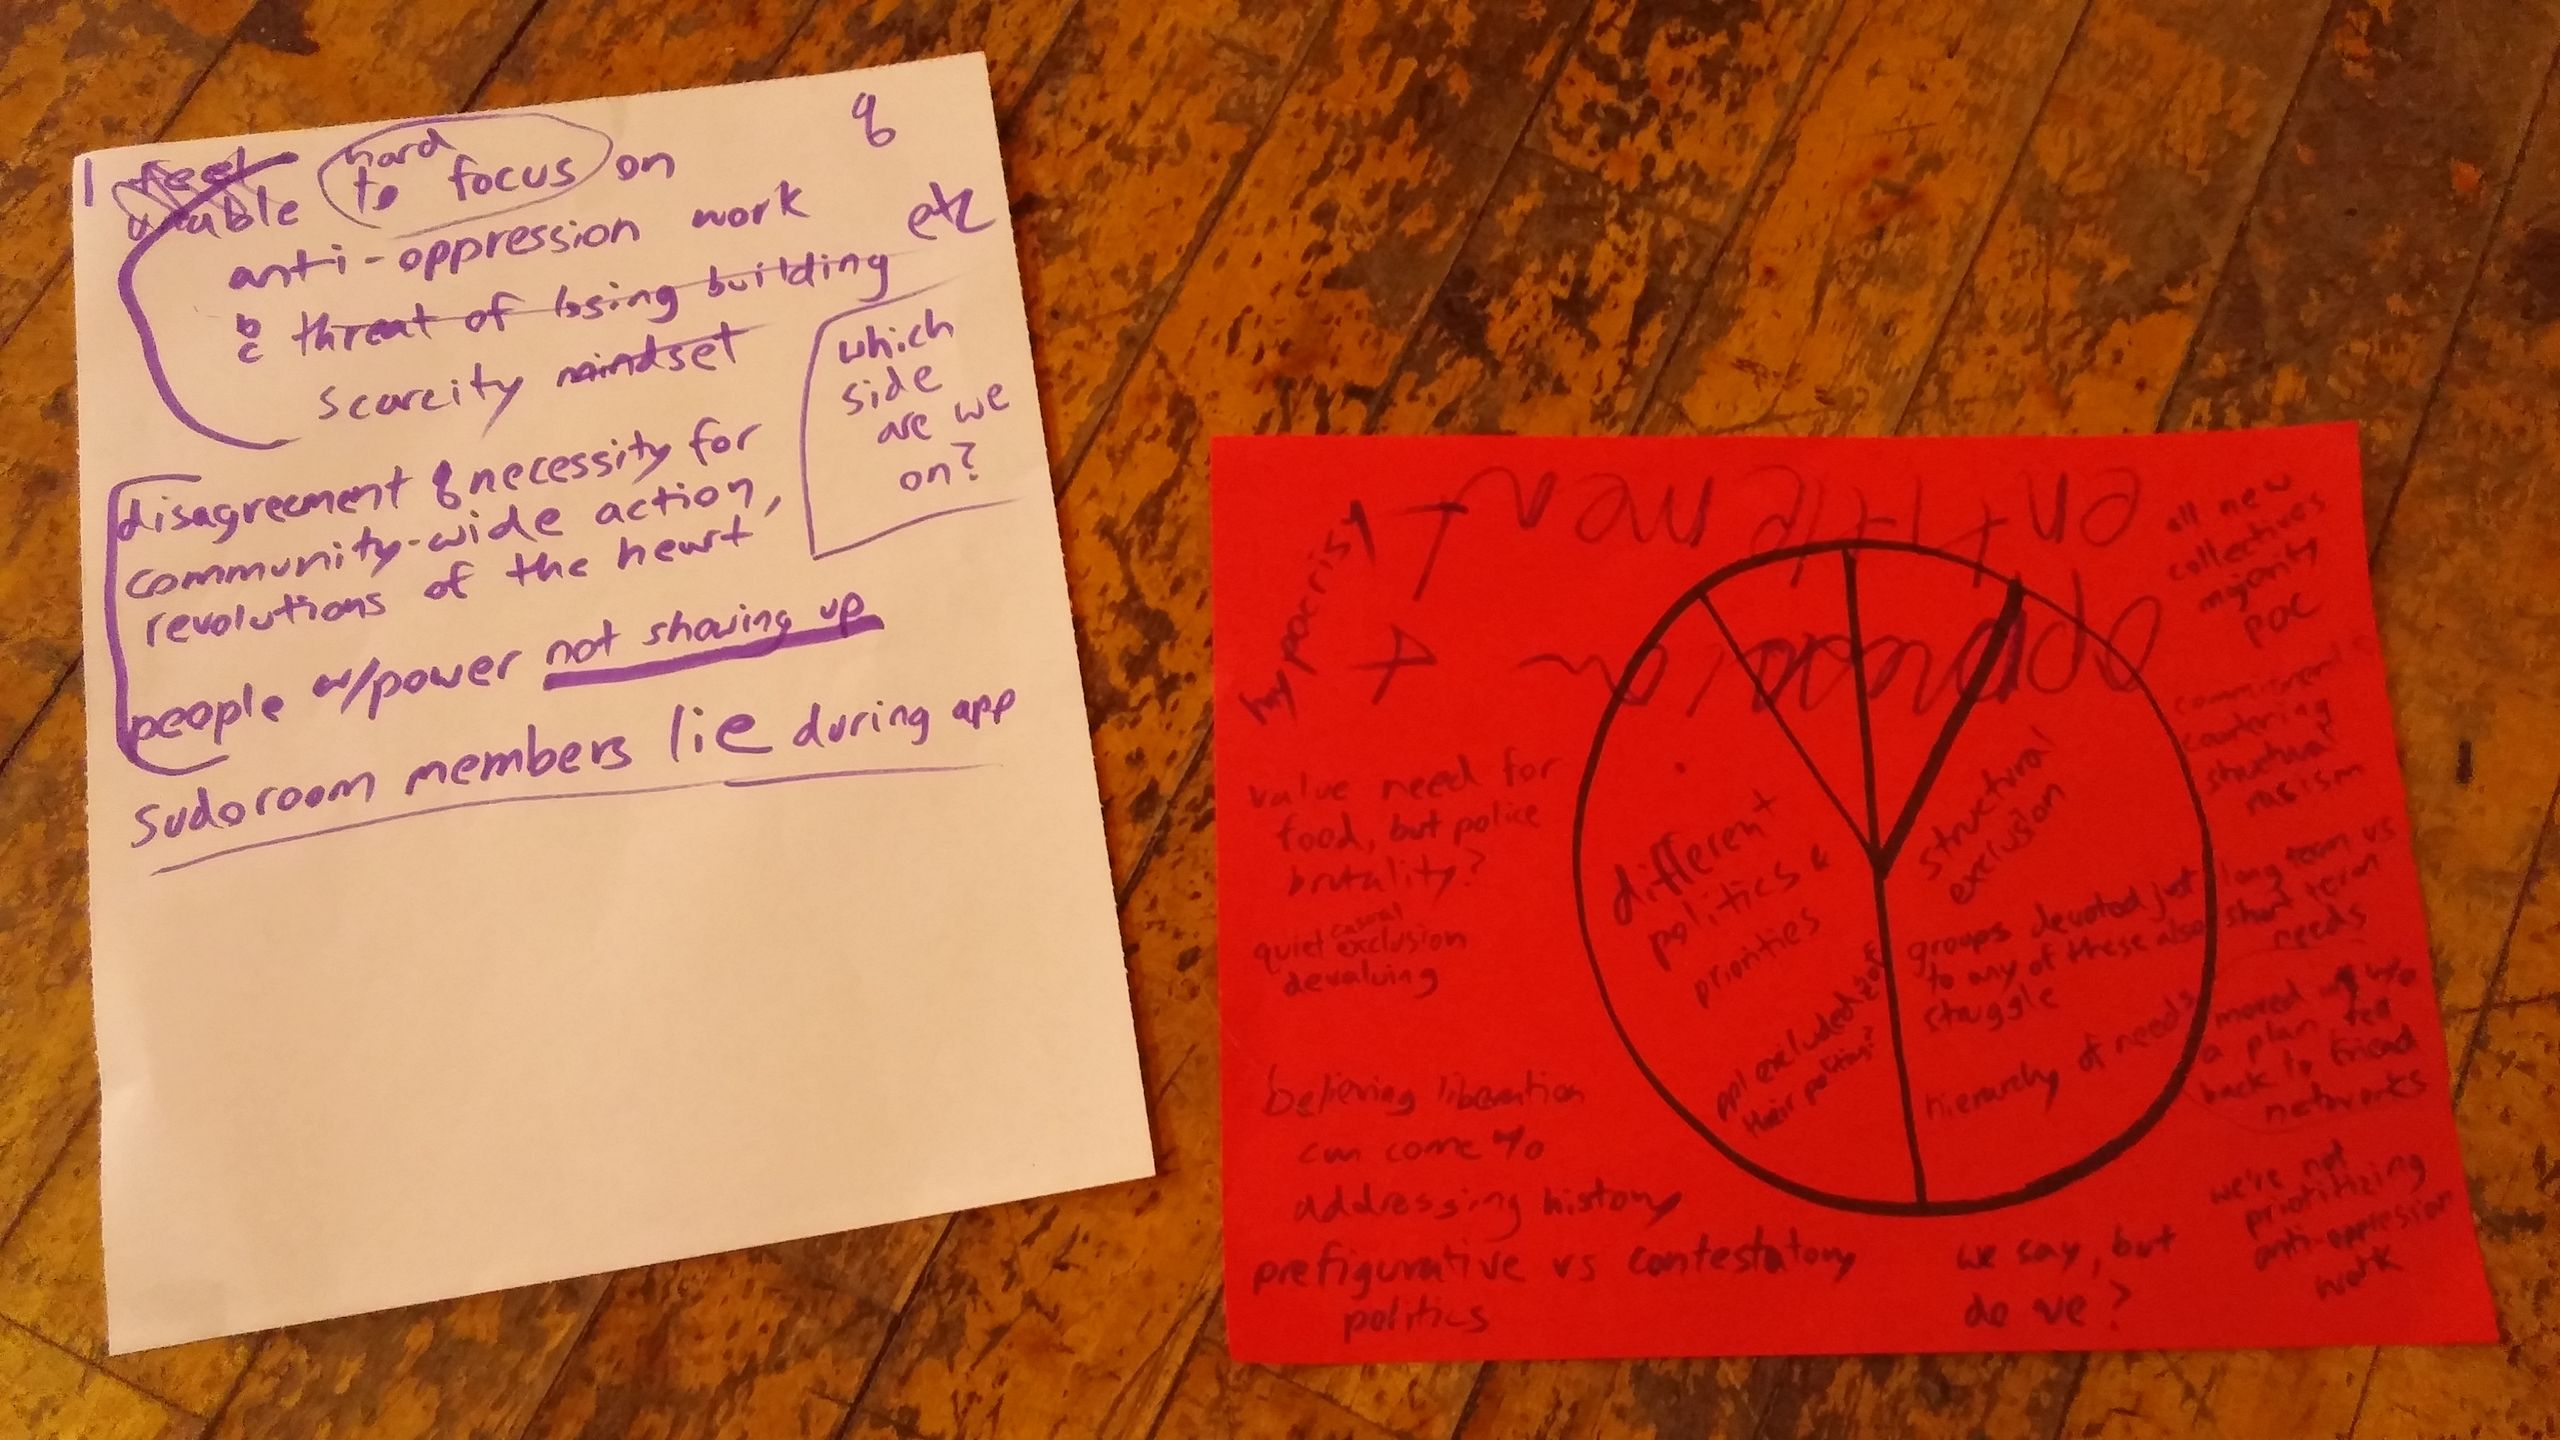 8
I feel
unable hard
to focus on
anti-oppression work
b
c threat of losing building etc
scarcity mindset
which
side
are we
on?
disagreement & necessity for
community-wide action,
revolutions of the heart
people w/power not showing up
sudoroom members lie during app
entitlement
oppression
hypocrisy
value need for
food, but police
brutality?
quiet casual exclusion
devaluing
believing liberation
can come w/o
addressing history
prefigurative vs contestatory
politics
different
politics &
priorities
ppl excluded
their politics?
structural
exclusion
groups devoted just
to any of these also
struggle
hierarchy of needs
all new
collectives
majority
POC
countering
structural
racism
long term vs
short term
needs
moved w/o
a plan
back to friend
networks
we're not
prioritizing
anti-oppression
work
we say, but
do we?